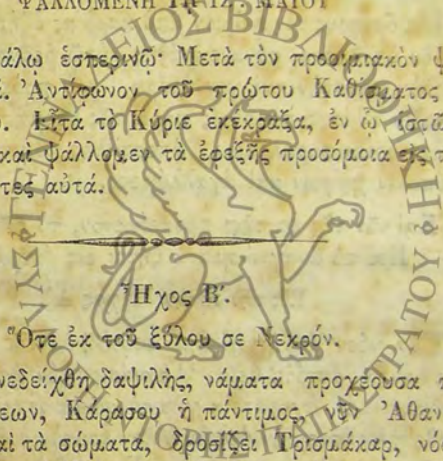 ΨΑΛΛΟΜΕΝΗ ΤΗ ΙΖ' ΜΑΪΟΥ
άλῳ ἑσπερινῷ· Μετὰ τὸν προοιμιακὸν ψ
ά. Ἀντίφωνον τοῦ πρώτου Καθίσματος
Εἶτα τὸ Κύριε ἐκέκραξα, ἐν ᾧ ἱστῶ
καὶ ψάλλομεν τὰ ἐφεξῆς προσόμοια εἰς τ
τες αὐτά.
Ἦχος Β΄.
Ὅτε ἐκ τοῦ ξύλου σε Νεκρόν.
νεδείχθη δαψιλὴς, νάματα προχέουσα
εων, Κάρασου ἡ πάντιμος, νῦν Ἀθαν
αὶ τὰ σώματα, δροσίζει Τρισμάκαρ, νό
ΓΕΝΝΑΔΕΙΟΣ ΒΙΒΛΙΟΘΗΚΗ